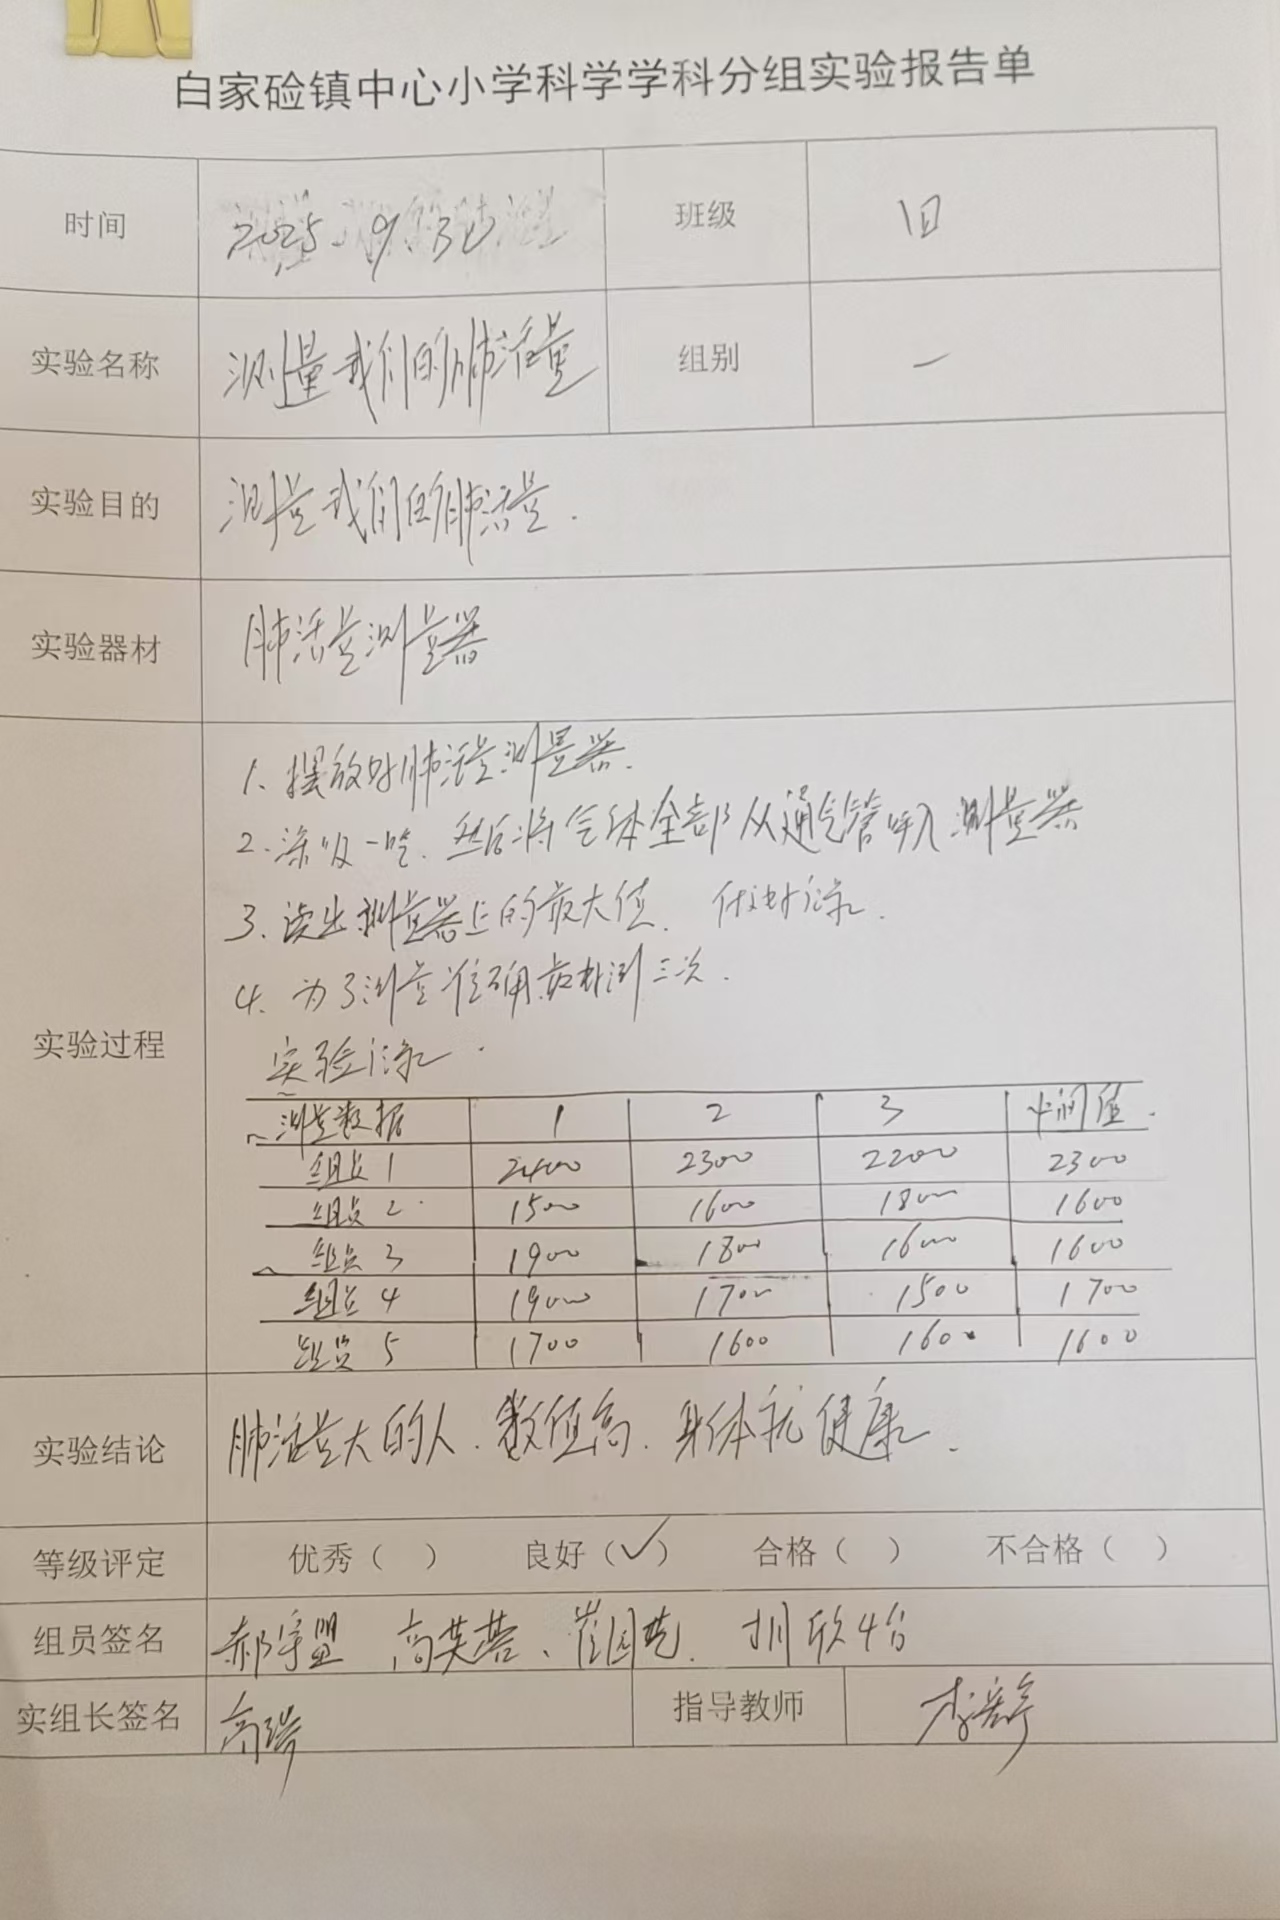 白家硷镇中心小学科学学科分组实验报告单
时间 2025.9.30 班级
实验名称 测量我们的肺活量 组别 一
实验目的 测量我们的肺活量.
实验器材 肺活量测量器
实验过程
1. 摆放好肺活量测量器.
2. 深吸一口气. 然后将气体全部从通气管呼入测量器
3. 读出测量器上的最大值. 做好记录.
4. 为了测量准确最好测三次.
实验记录.
测量数据 1 2 3 中间值.
组员1 2400 2300 2200 2300
组员2 1500 1600 1800 1600
组员3 1900 1800 1600 1600
组员4 1900 1700 1500 1700
组员5 1700 1600 1600 1600
实验结论 肺活量大的人. 数值高. 身体就健康.
等级评定 优秀（ ） 良好（✓） 合格（ ） 不合格（ ）
组员签名 郝宇盟
实组长签名 高瑞 指导教师